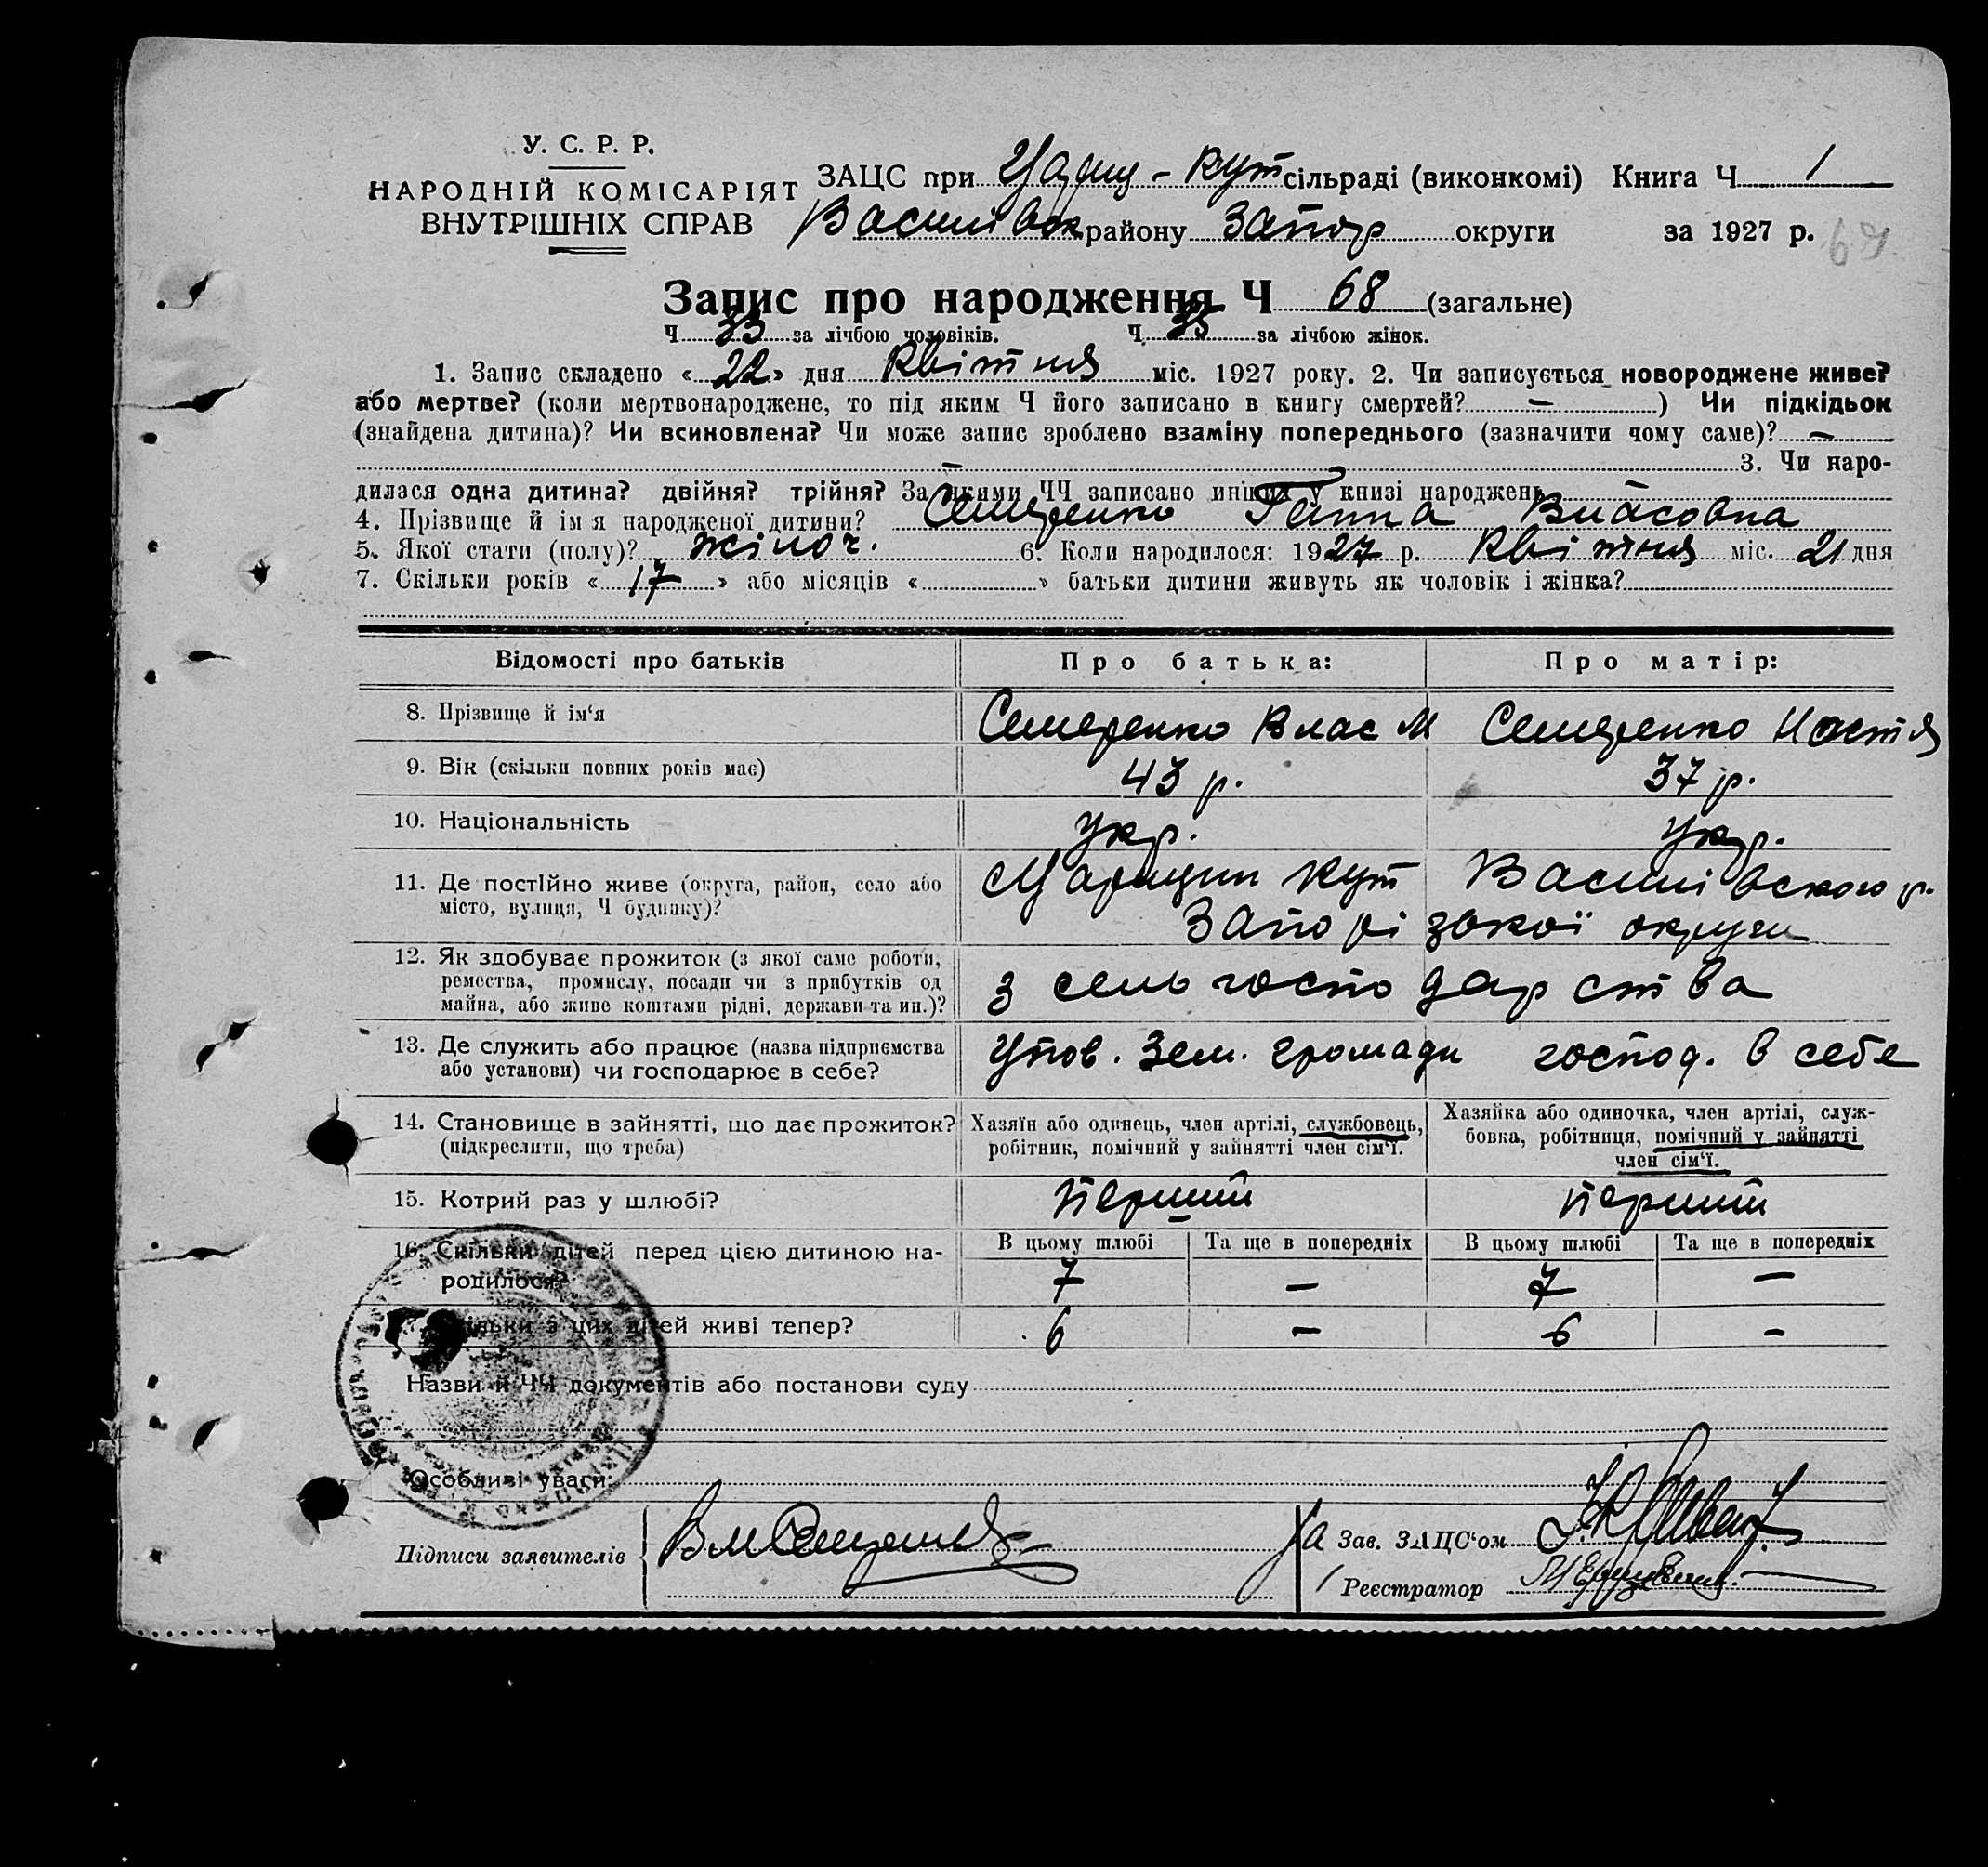 У. С. Р. Р.
НАРОДНІЙ КОМІСАРІЯТ
ВНУТРІШНІХ СПРАВ
ЗАЦС при Цариц-Кут сільраді (виконкомі) Книга Ч 1
Василівск району Запор округи за 1927 р.
Запис про народження Ч 68 (загальне)
Ч 33 за лічбою чоловіків. Ч 35 за лічбою жінок.
1. Запис складено « 22 » дня Квітня міс. 1927 року. 2. Чи записується новороджене живе?
або мертве? (коли мертвонароджене, то під яким Ч його записано в книгу смертей? — ) Чи підкідьок
(знайдена дитина)? Чи всиновлена? Чи може запис зроблено взаміну попереднього (зазначити чому саме)? —
— 3. Чи наро-
дилася одна дитина? двійня? трійня? За якими ЧЧ записано инших у книзі народжень
4. Прізвище й ім я народженої дитини? Семеренко Ганна Власовна
5. Якої стати (полу)? жіноч. 6. Коли народилося: 1927 р. Квітня міс. 21 дня
7. Скільки років « 17 » або місяців « » батьки дитини живуть як чоловік і жінка?
Відомості про батьків Про батька: Про матір:
8. Прізвище й ім'я Семеренко Влас М Семеренко Настя
9. Вік (скільки повних років має) 43 р. 37 р.
10. Національність Укр. Укр.
11. Де постійно живе (округа, район, село або Царицин Кут Василівского р.
місто, вулиця, Ч будинку)? Запорізької округи
12. Як здобуває прожиток (з якої саме роботи,
ремества, промислу, посади чи з прибутків од з сельгосподарства
майна, або живе коштами рідні, держави та ин.)?
13. Де служить або працює (назва підприємства Упов. Зем. громади господ. в себе
або установи) чи господарює в себе?
14. Становище в зайнятті, що дає прожиток? Хазяїн або одинець, член артілі, службовець, Хазяйка або одиночка, член артілі, служ-
(підкреслити, що треба) робітник, помічний у зайнятті член сім'ї. бовка, робітниця, помічний у зайнятті
член сім'ї.
15. Котрий раз у шлюбі? перший перший
16. Скільки дітей перед цією дитиною на- В цьому шлюбі Та ще в попередніх В цьому шлюбі Та ще в попередніх
родилося? 7 — 7 —
17. Скільки з цих дітей живі тепер? 6 — 6 —
Назви й ЧЧ документів або постанови суду
Особливі уваги:
Підписи заявителів За Зав. ЗАЦС'ом
Реєстратор